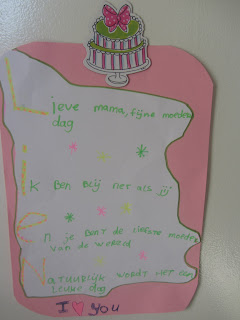 Lieve mama, fijne moeder
dag
Ik Ben Blij net als jij
En je Bent de liefste moeder
van de wereld
Natuurlijk wordt het een
Leuke dag
I ♥ you